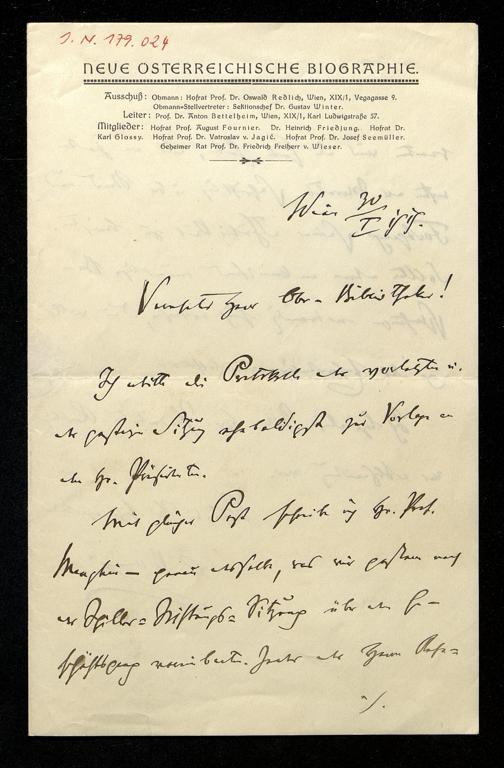 J. N. 179.024
NEUE ÖSTERREICHISCHE BIOGRAPHIE.
Ausschuß: Obmann: Hofrat Prof. Dr. Oswald Redlich, Wien, XIX/1, Vegagasse 9.
Obmann-Stellvertreter: Sektionschef Dr. Gustav Winter.
Leiter: Prof. Dr. Anton Bettelheim, Wien, XIX/1, Karl Ludwigstraße 57.
Mitglieder: Hofrat Prof. August Fournier. Dr. Heinrich Friedjung. Hofrat Dr.
Karl Glossy. Hofrat Prof. Dr. Vatroslav v. Jagić. Hofrat Prof. Dr. Josef Seemüller.
Geheimer Rat Prof. Dr. Friedrich Freiherr v. Wieser.
Wien
Verehrter Herr Ober-Bibliothekar!
Ich bitte die Protokolle der vorletzten u.
der gestrigen Sitzung ehebaldigst zur Vorlage an
den Hr. Präsidenten.
Mit gleicher Post schreibe ich Hr. Prof.
genau dasselbe, was wir gestern nach
der Schiller-Stiftungs-Sitzung über den Ge-
schäftsgang vereinbarten. Jeder der Herren Refe-
./.